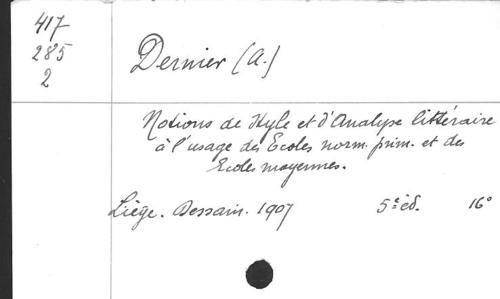 417
285
2
Dernier (A.)
Notions de Style et d'Analyse littéraire
à l'usage des Ecoles norm. prim. et des
Ecoles moyennes.
Liège. Dessain. 1907 5e éd. 16°